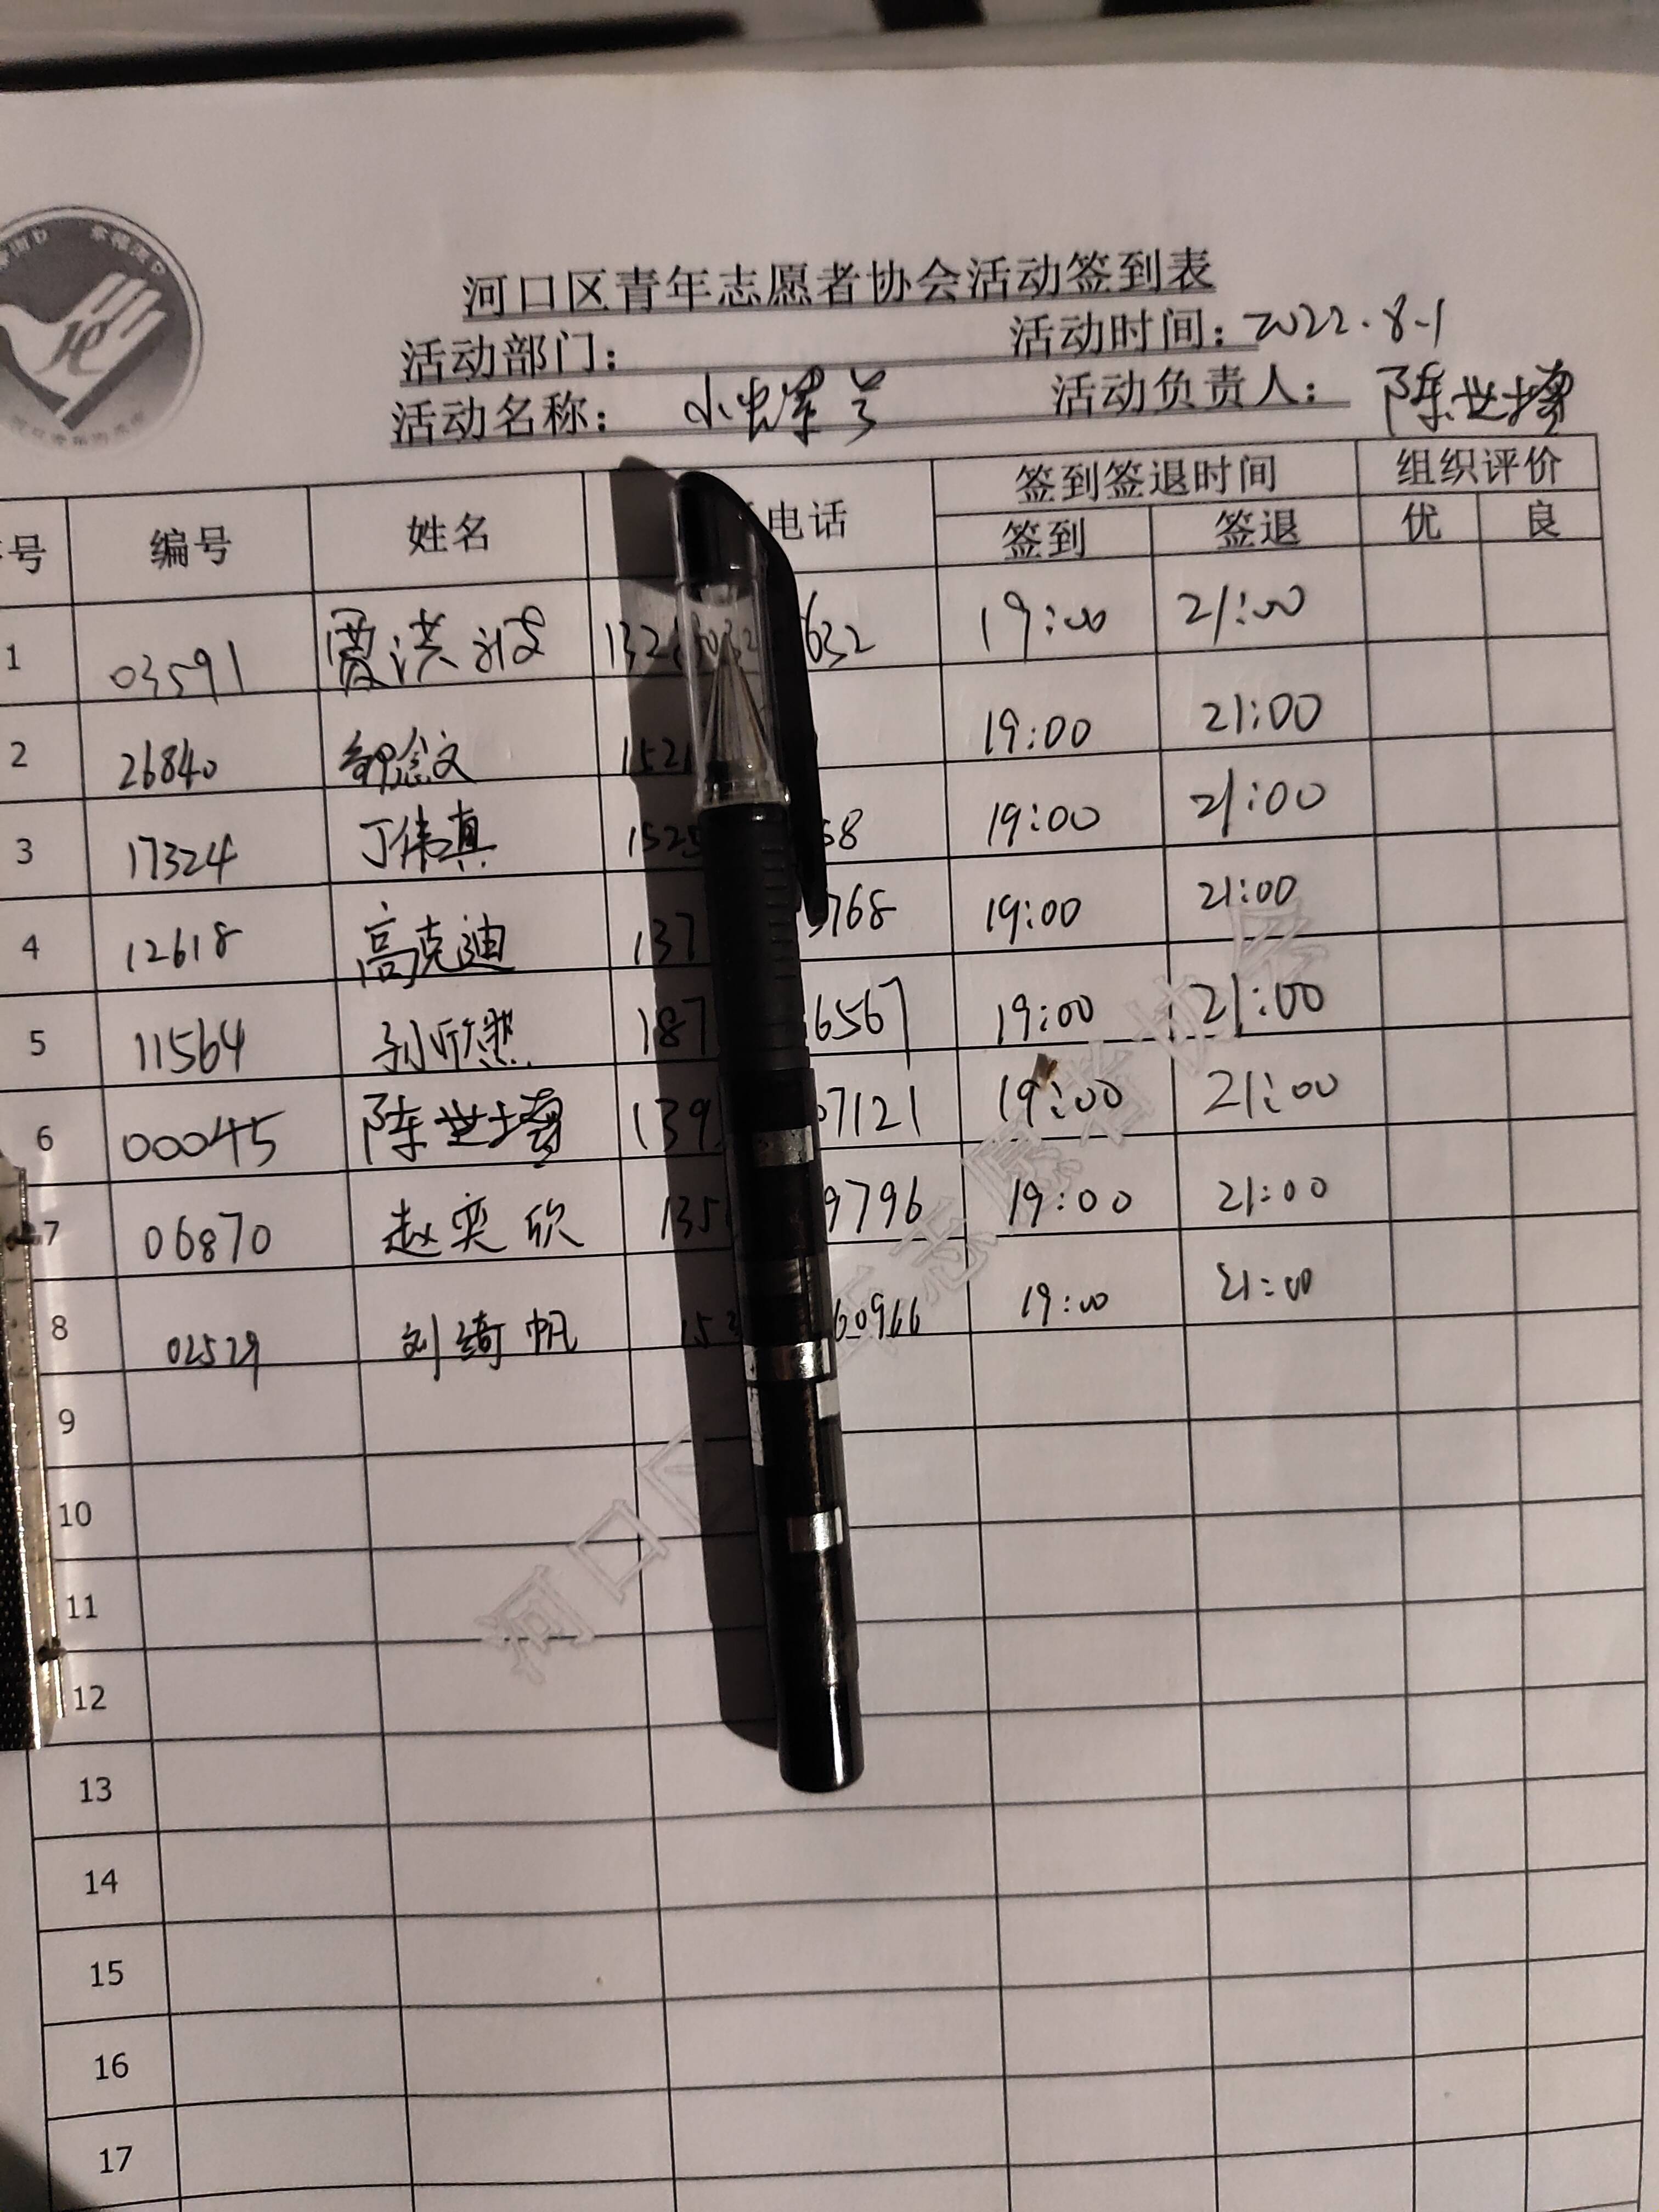 河口区青年志愿者协会活动签到表
活动部门： 活动时间：2022.8-1
活动名称： 活动负责人：陈世
号 编号 姓名 电话 签到签退时间 组织评价
签到 签退 优 良
1 03591 贾洪 632 19:00 21:00
2 26840 邹念文 152 19:00 21:00
3 17324 丁伟真 1525 58 19:00 21:00
4 12618 高克迪 137 768 19:00 21:00
5 11564 孙欣然 187 6567 19:00 21:00
6 00045 陈世 139 07121 19:00 21:00
7 06870 赵奕欣 135 9796 19:00 21:00
8 02529 刘绮帆 153 60966 19:00 21:00
9
10
11
12
13
14
15
16
17
河口区 年志愿者协会